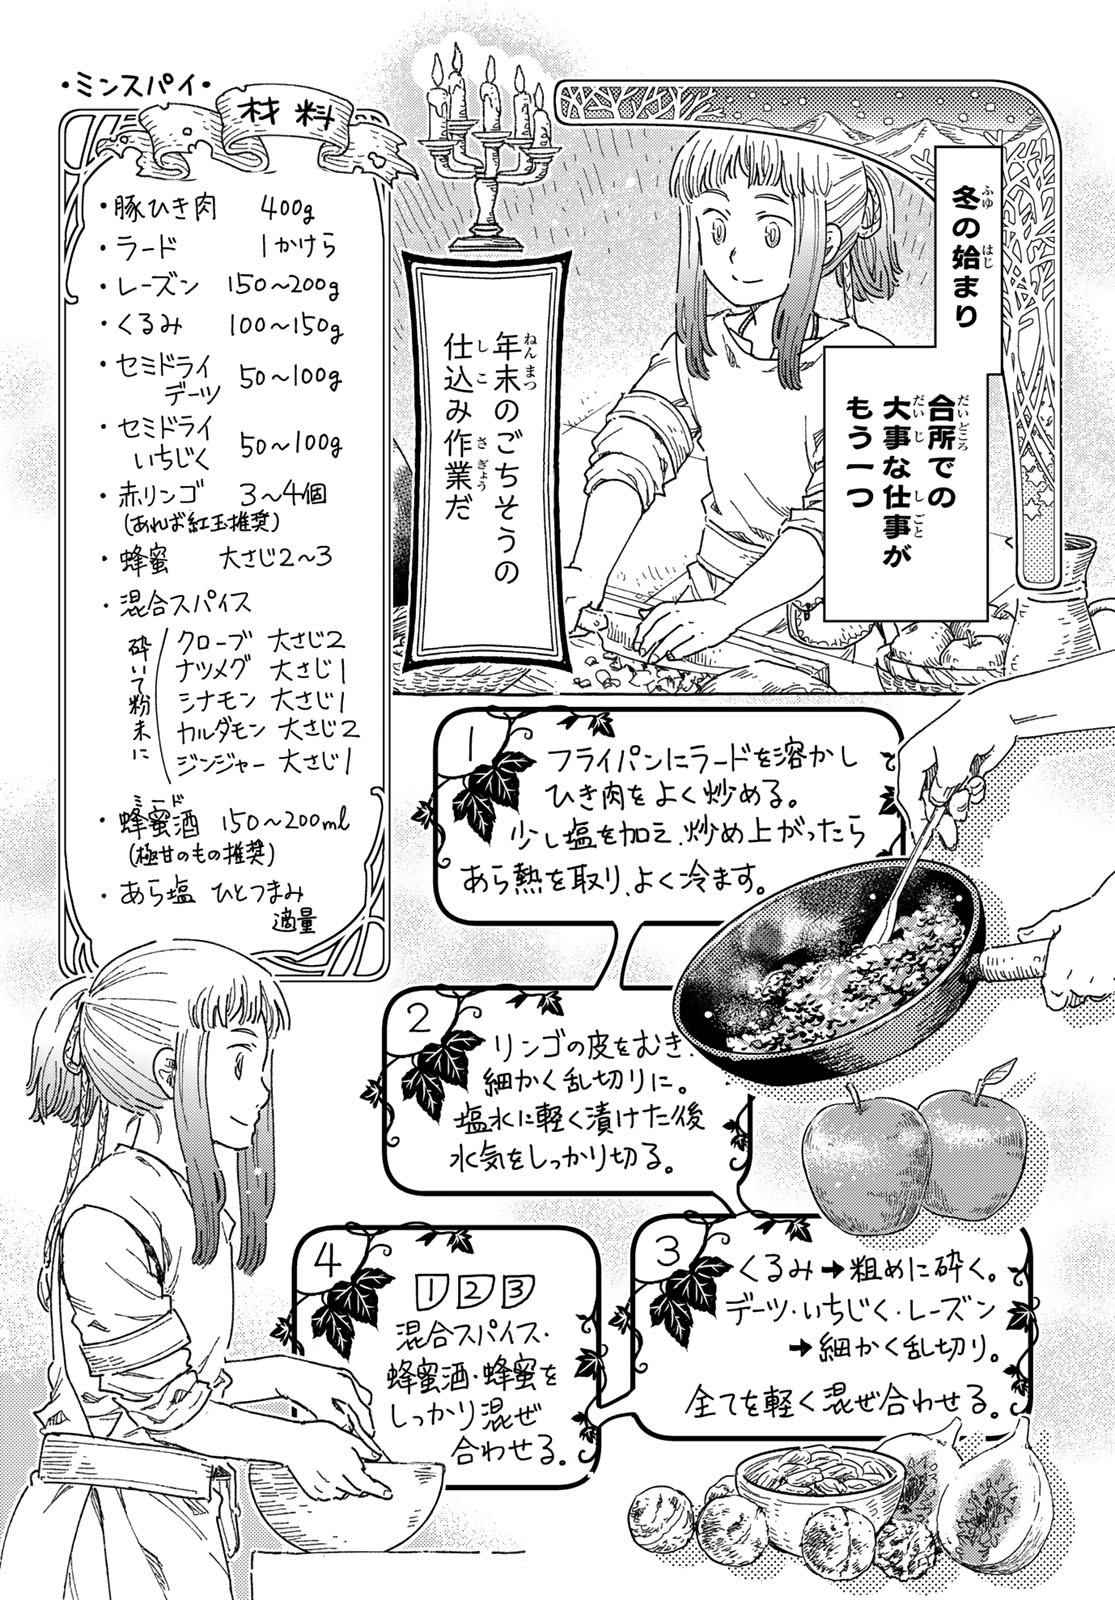 冬の始まり
台所での
大事な仕事が
もう一つ
年末のごちそうの
仕込み作業だ
・ミンスパイ・
材料
・豚ひき肉 400g
・ラード 1かけら
・レーズン 150〜200g
・くるみ 100〜150g
・セミドライ
デーツ 50〜100g
・セミドライ
いちじく 50〜100g
・赤リンゴ 3〜4個
(あれば紅玉推奨)
・蜂蜜 大さじ2〜3
・混合スパイス
砕いて粉末に
クローブ 大さじ2
ナツメグ 大さじ1
シナモン 大さじ1
カルダモン 大さじ2
ジンジャー 大さじ1
・蜂蜜酒 150〜200ml
(極甘のもの推奨)
・あら塩 ひとつまみ
適量
1
フライパンにラードを溶かし
ひき肉をよく炒める。
少し塩を加え、炒め上がったら
あら熱を取り、よく冷ます。
2
リンゴの皮をむき、
細かく乱切りに。
塩水に軽く漬けた後
水気をしっかり切る。
3
くるみ→粗めに砕く。
デーツ・いちじく・レーズン
→細かく乱切り。
全てを軽く混ぜ合わせる。
4
1 2 3
混合スパイス・
蜂蜜酒・蜂蜜を
しっかり混ぜ
合わせる。